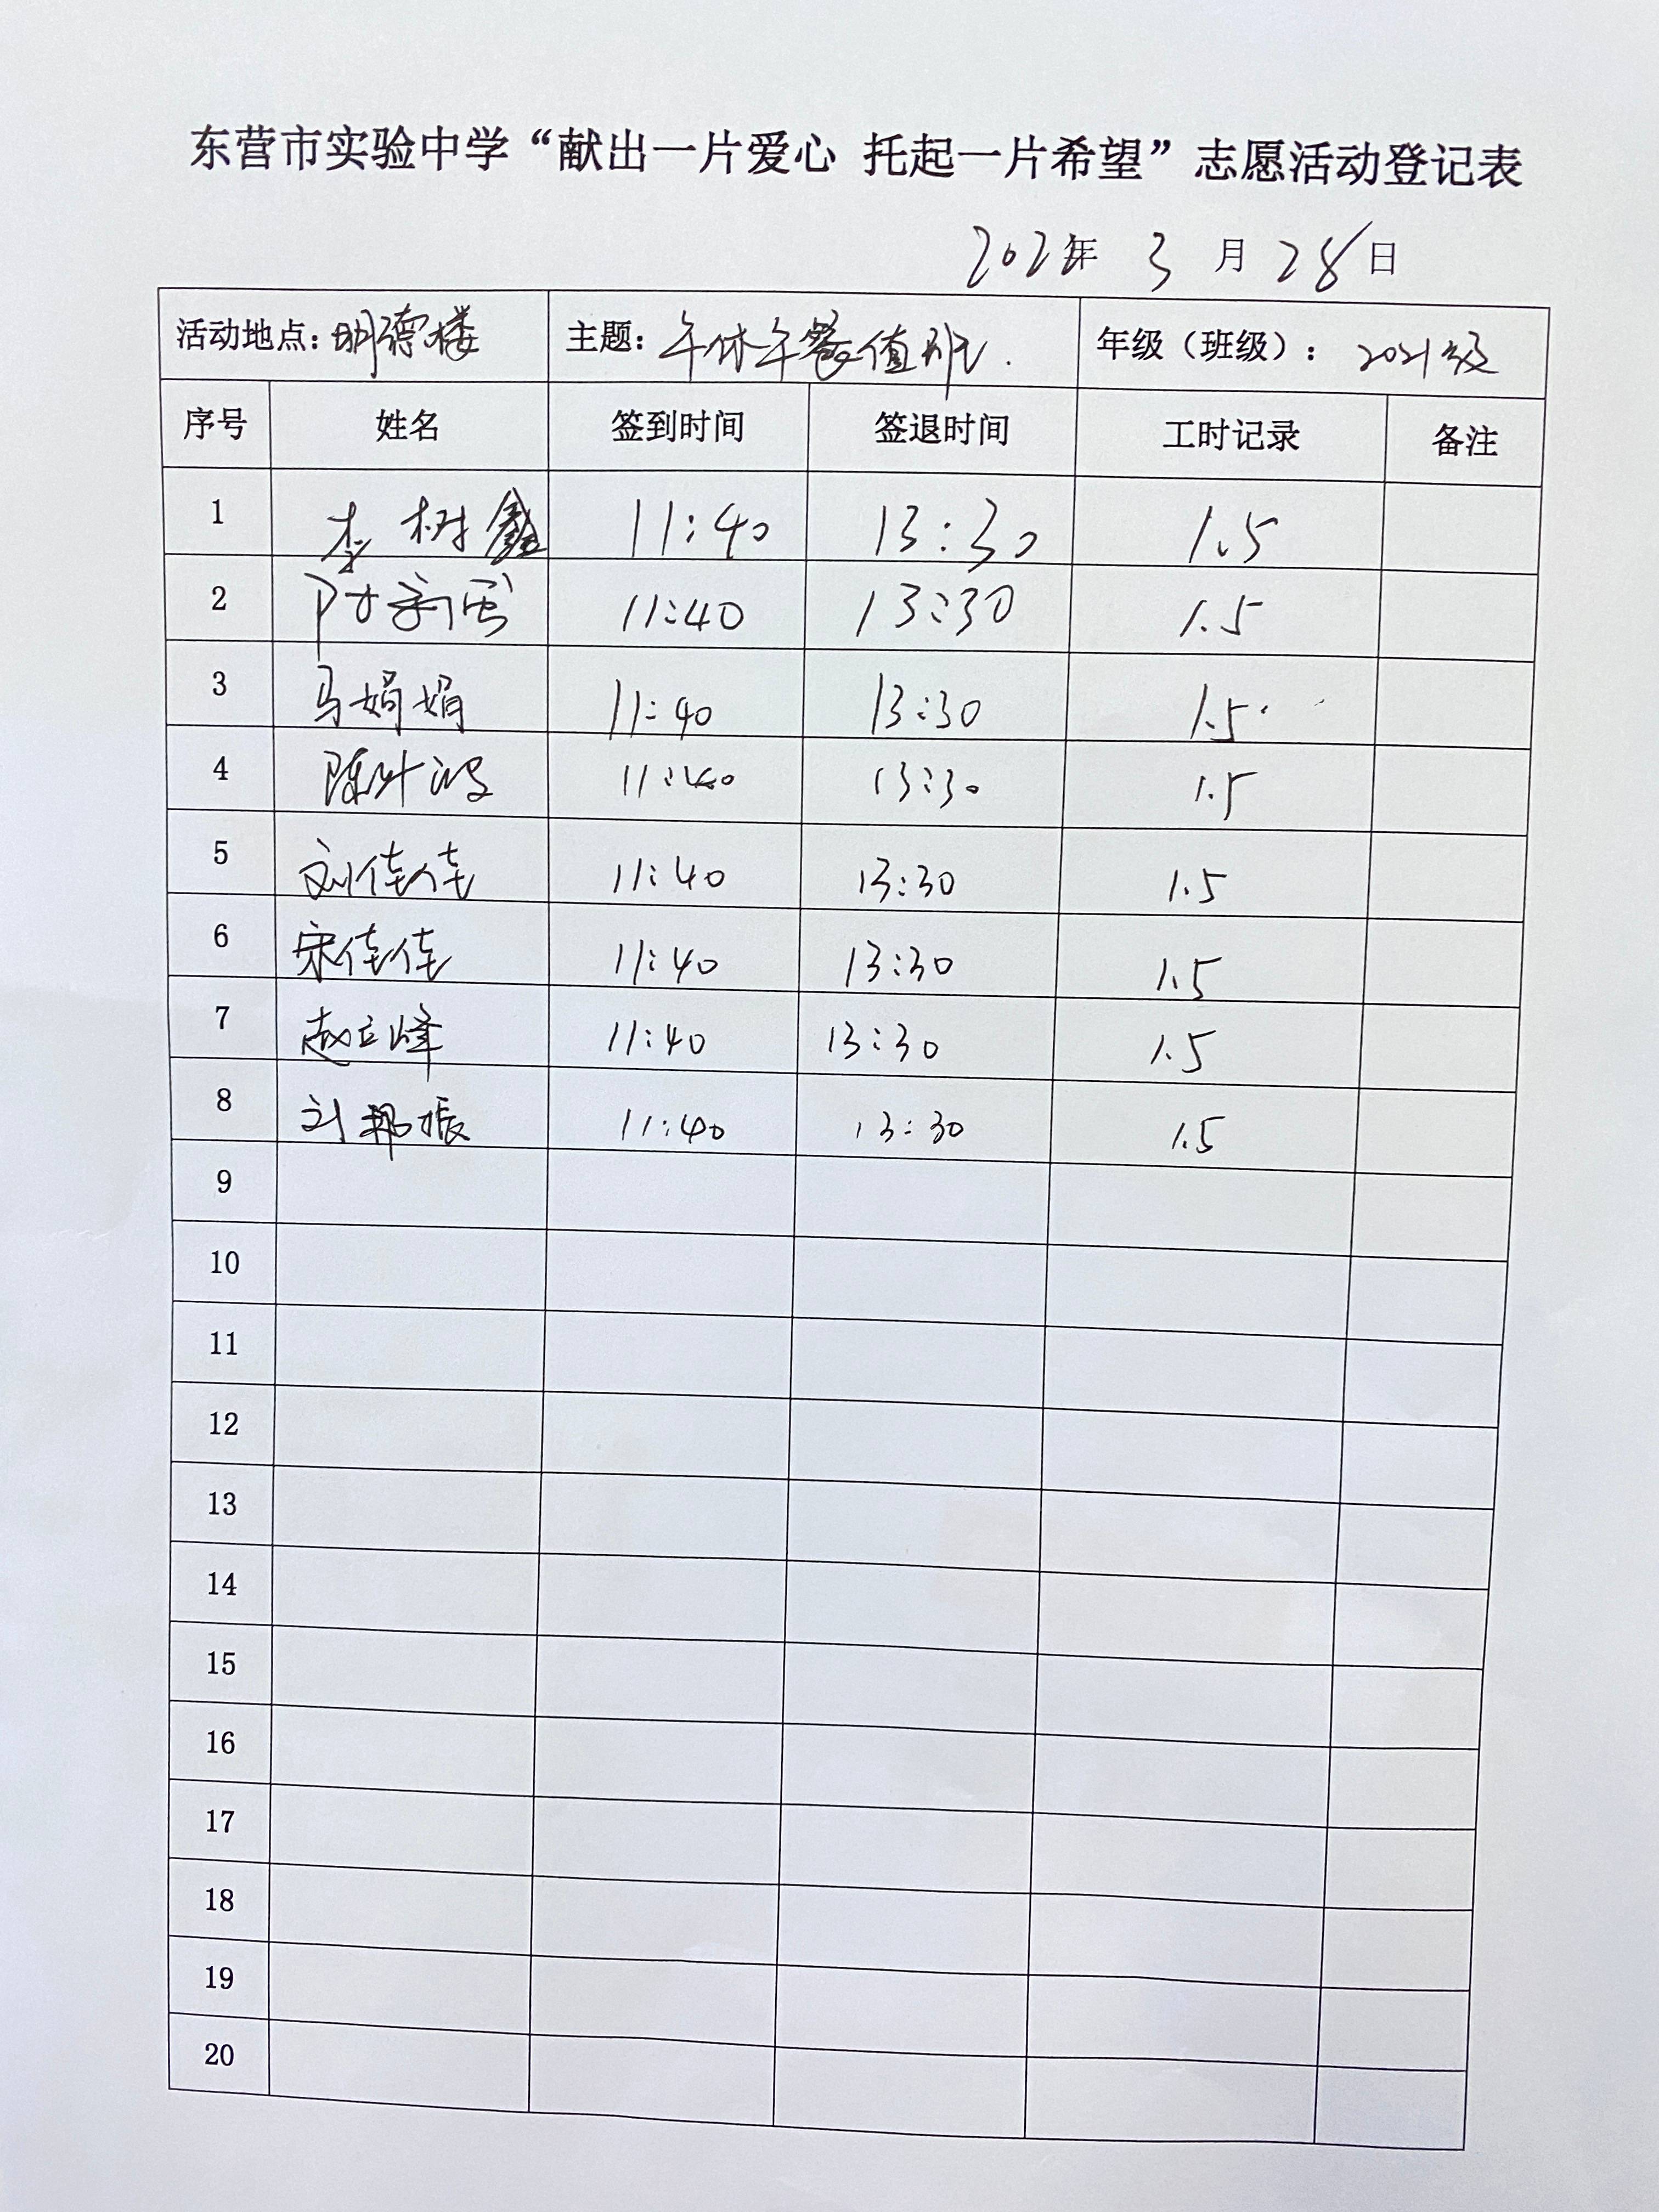 东营市实验中学“献出一片爱心 托起一片希望”志愿活动登记表
2022年 3 月 28 日
活动地点：明德楼 主题：午休午餐值班. 年级（班级）： 2021级
序号 姓名 签到时间 签退时间 工时记录 备注
1 李树鑫 11:40 13:30 1.5
2 11:40 13:30 1.5
3 马娟娟 11:40 13:30 1.5
4 陈叶 11:40 13:30 1.5
5 刘佳佳 11:40 13:30 1.5
6 宋佳佳 11:40 13:30 1.5
7 赵立峰 11:40 13:30 1.5
8 刘邦振 11:40 13:30 1.5
9
10
11
12
13
14
15
16
17
18
19
20